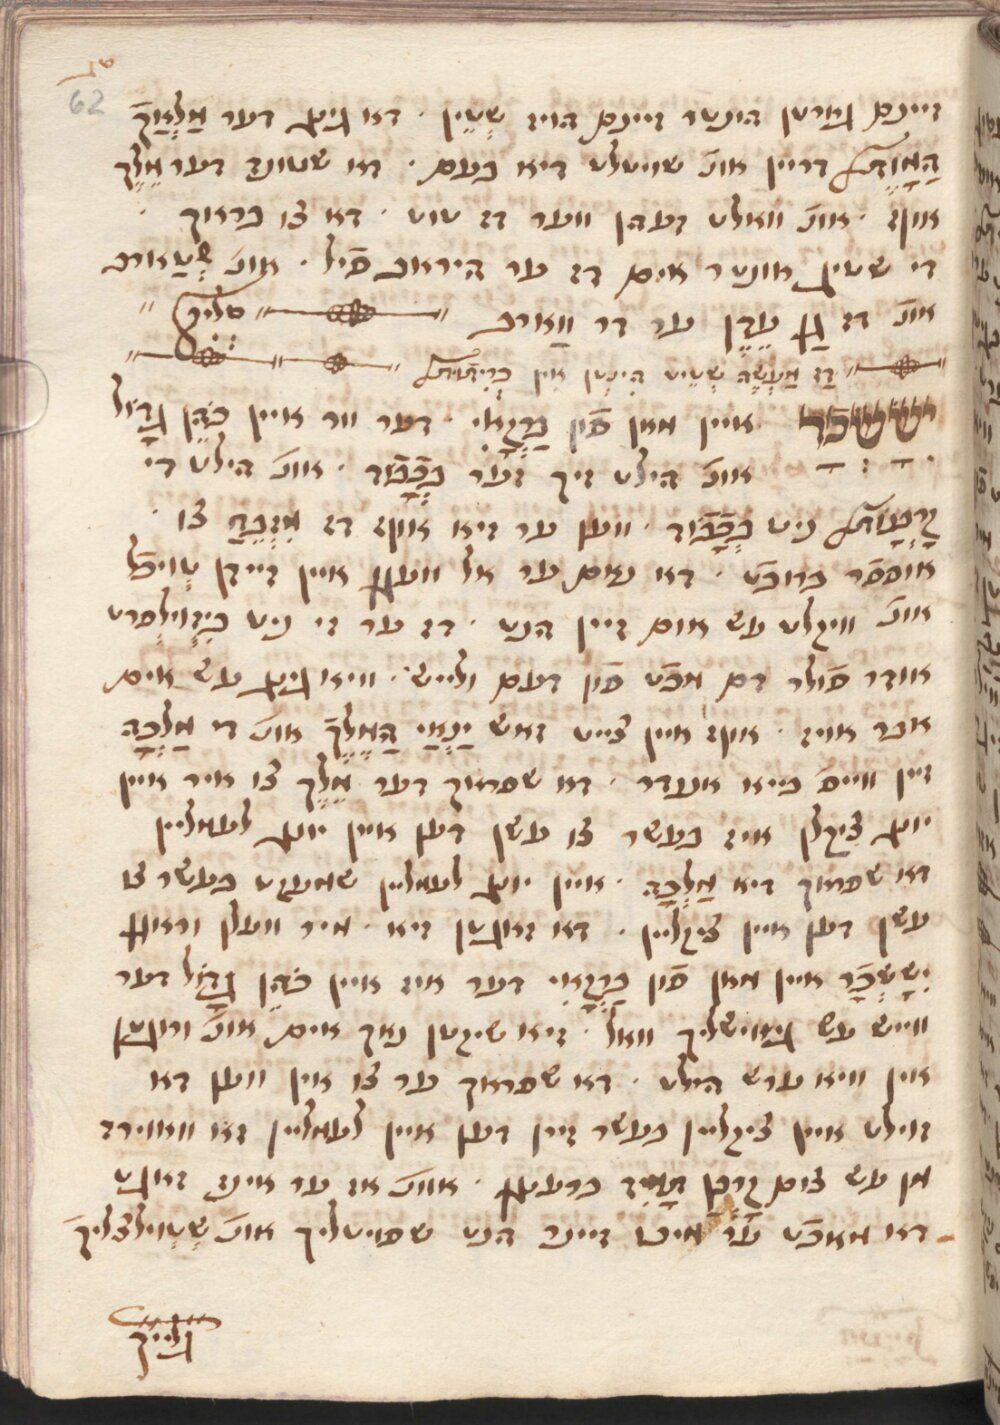 62
זיינם גארטן הינטר זיינם הויז שְטֵין · דא גינג דער מַלְאַךְ
הַמָוֶת דריין אונ' שויטלט דיא בעם · דא שטונד דער מֶלֶךְ
אונ' וואלט זעהן ווער דז טוט · דא צו בראך
די שטיג אונטר אים דז ער היראב פֿיל · אונ' שְטַארב
אונ' דז גַן עֵדֶן ער דר וַוארב סליק
דַז מַעֲשֶה שְטֵיט הִינְטן אִין כְּרִיתוּת
יִשָשכָר איין מאן פֿון בַּרְקָאִי · דער וור איין כֹּהֵן גָדוֹל
אונ' הילט זיך זֵער בְּכָבוֹד · אונ' הילט די
קָרְבָּנוֹת ניט בְּכָבוֹד · ווען ער זיא אונז דז מִזְבֵּחַ צו
אופפֿר ברוכֿט · דא נאם ער אל וועגן איין זיידן טְויכֿל
אונ' וויקלט עש אום זיין הנט · דז ער זי ניט בִּיזְוילְפרט
אודר פֿולר דם מכֿט פֿון דעם ולייש · וויא גינג עש אים
אבר אויז · אונז איין צייט זאש יַנַאי הַמֶלֶךְ אונ' די מַלְכָּה
זיין ווייפ בייא מנדר · דא שפראך דער מֶלֶךְ צו איר איין
יונג ציקלן איז בעשר צו עשן דען איין יונג לעמליין
דא שפראך דיא מַלְכָּה · איין יונג לעמליין שמעקט בעשר צו
עשן דען איין ציקליין · דא זאגטן זיא · מיר וועלן ורֿאגן
יִשָשכָר איין מאן פֿון בַּרְקָאִי דער איז איין כֹּהֵן גָדוֹל דער
ווייש עש גיווישליך וואל · זיא שיקטן נאך אים אונ' ורֿוגטן
אין וויא ערש הילט · דא שפראך ער צו אין ווען דא
זוילט איין ציקליין בעשר זיין דען איין לעמליין זא ווארד
מן עש צום קָרְבָּן תָמִיד ברענגן · אונ' אז ער אינז זאגט
דא מאכֿט ער מיט זיינר הנט שפויטליך אונ' שְטְוילצליך
גלייך